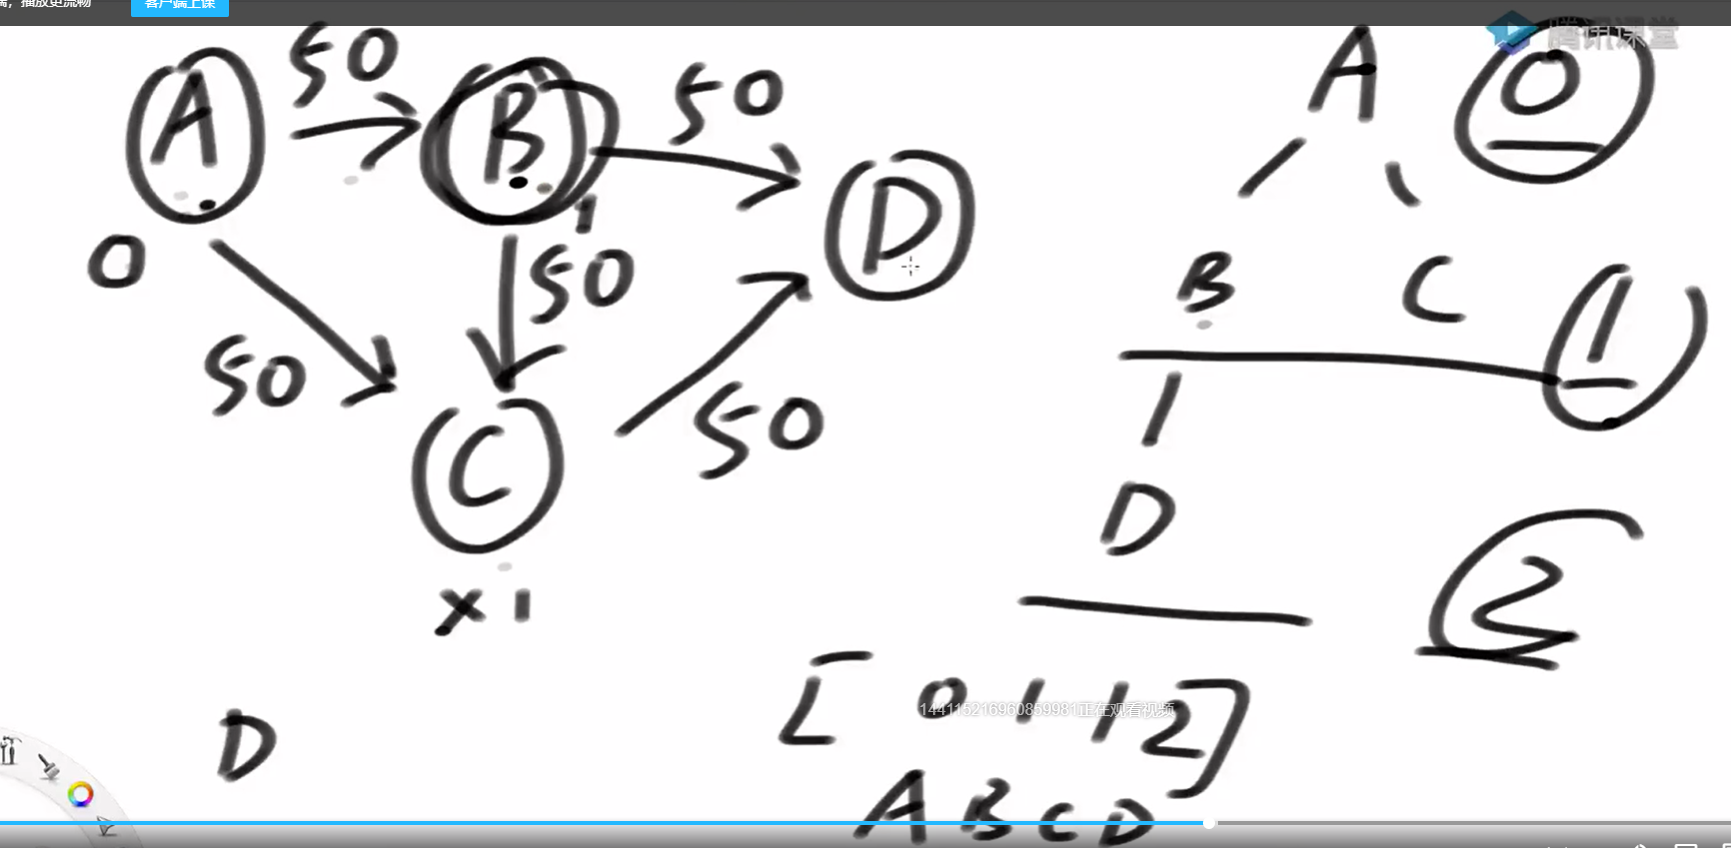 播放更流畅
客户端上课
腾讯课堂
A 50 B 50 D
0
50
50
50
C
x 1
1
D
A 0
B C 1
D
2
[ 0 1 1 2 ]
A B C D
144115216960859981正在观看视频